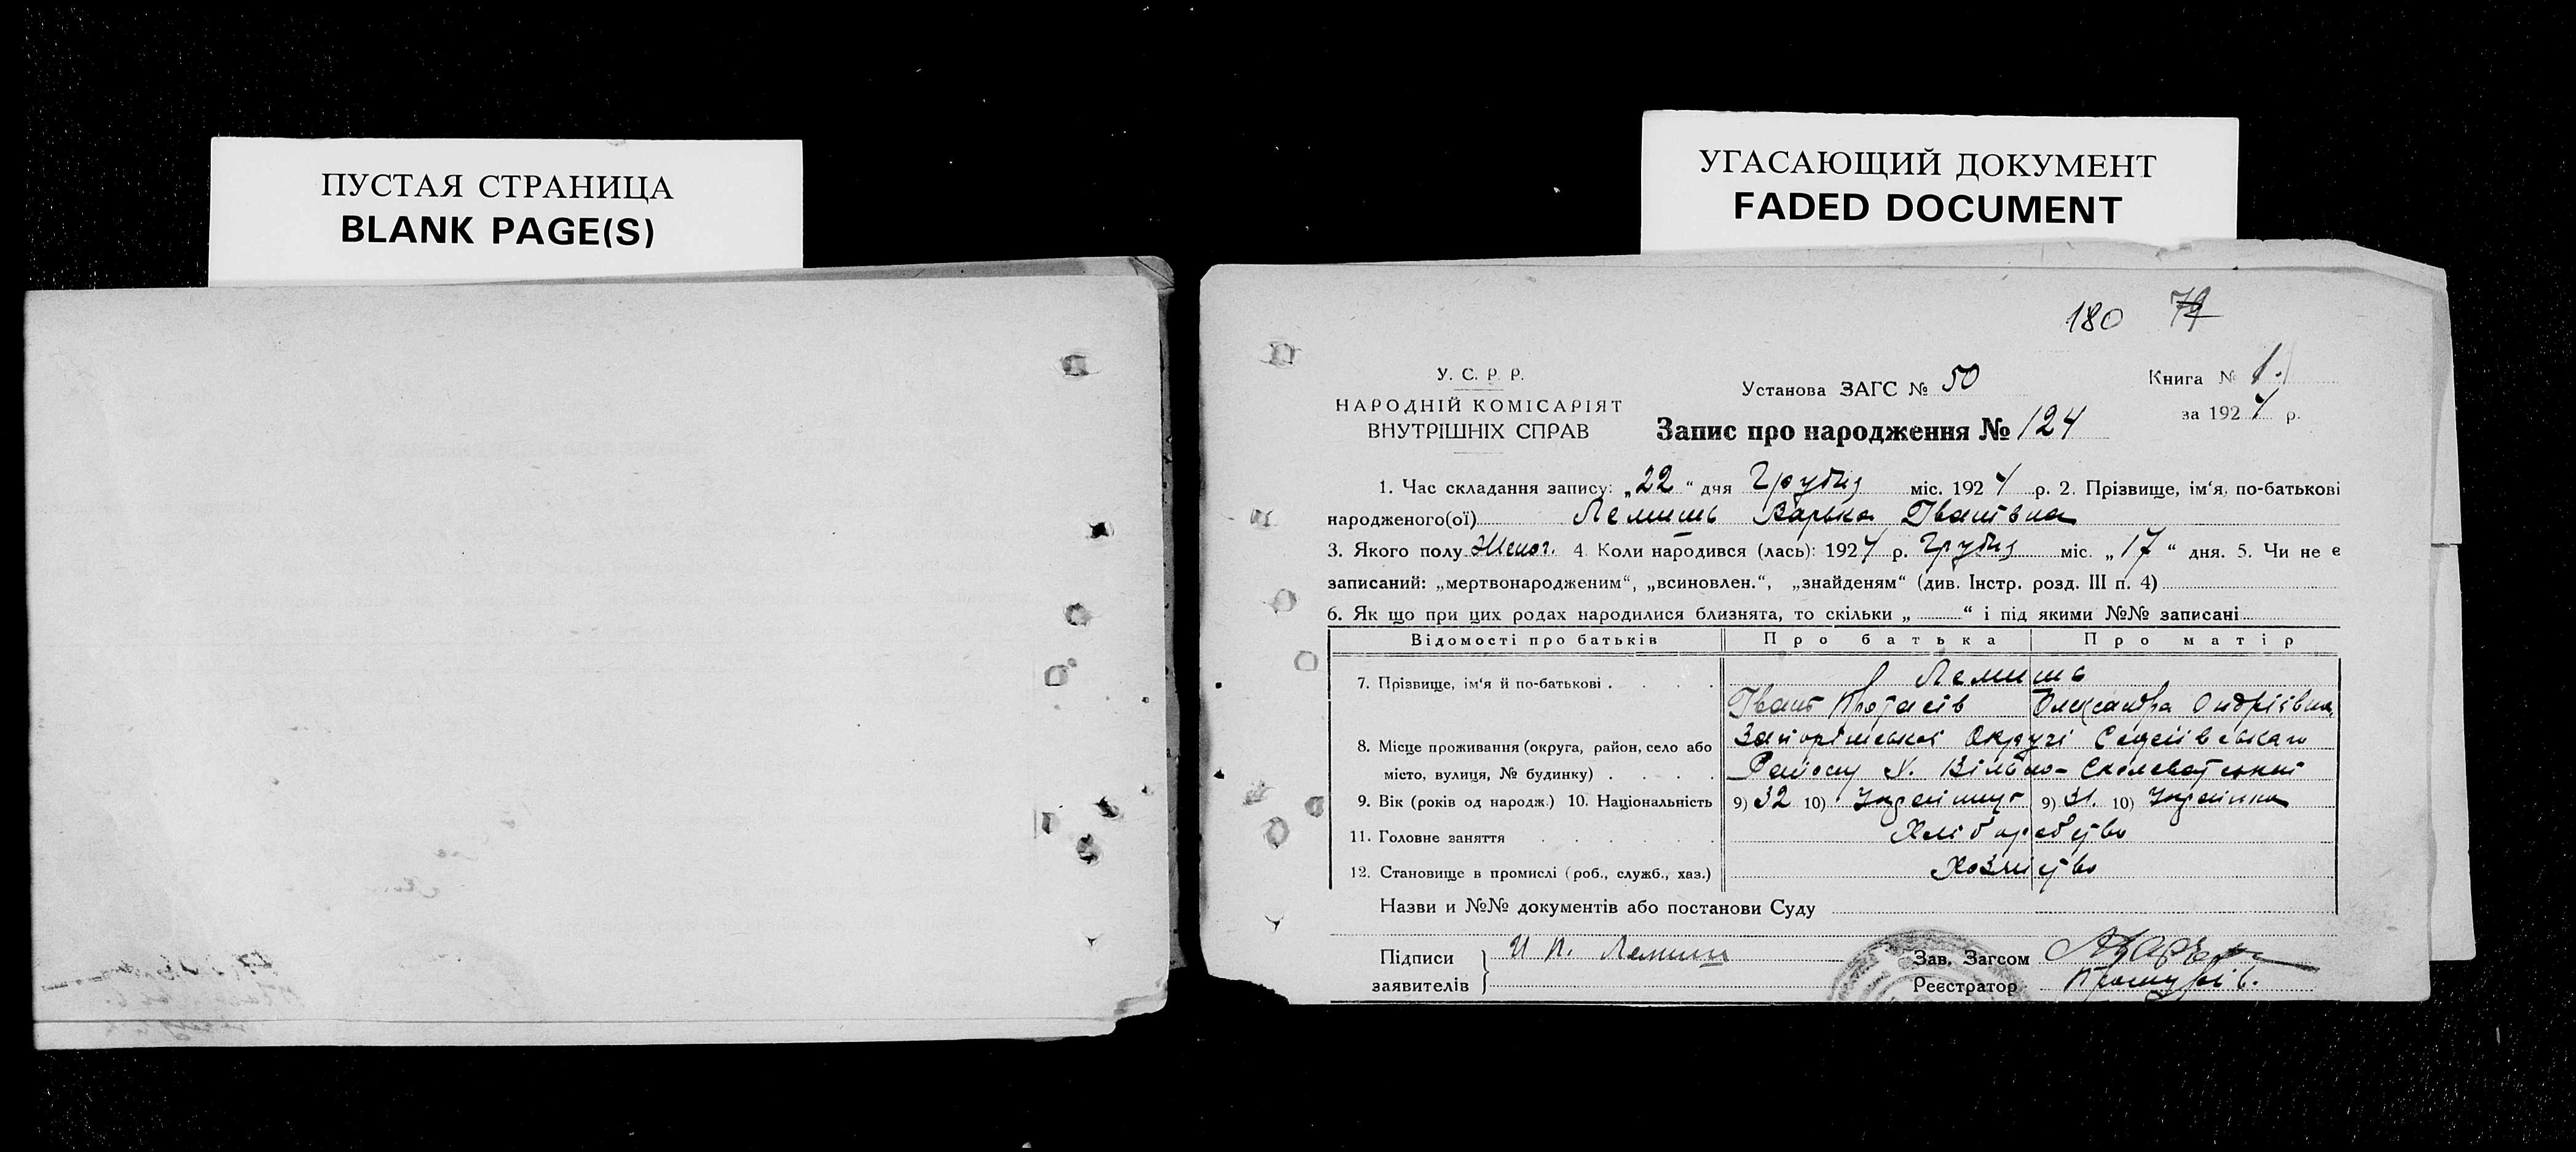 ПУСТАЯ СТРАНИЦА
BLANK PAGE(S)
УГАСАЮЩИЙ ДОКУМЕНТ
FADED DOCUMENT
180 79
У. С. Р. Р.
НАРОДНІЙ КОМІСАРІЯТ
ВНУТРІШНІХ СПРАВ
Установа ЗАГС № 50
Книга № 1.
за 1924 р.
Запис про народження № 124
1. Час складання запису: „22“ дня Грудня міс. 1924 р. 2. Прізвище, ім'я, по-батькові
народженого(ої) Лемишь Варька Іванівна
3. Якого полу Женог. 4. Коли народився (лась): 1924 р. Грудня міс. „17“ дня. 5. Чи не є
записаний: „мертвонародженим“, „всиновлен.“, „знайденям“ (див. Інстр. розд. III п. 4)
6. Як що при цих родах народилися близнята, то скільки „ “ і під якими №№ записані
Відомості про батьків Про батька Про матір
7. Прізвище, ім'я й по-батькові Лемишь
Іван Протасів Олександра Ондріївна
8. Місце проживання (округа, район, село або Запорізської Округі
місто, вулиця, № будинку) Району Х. Вільно-
9. Вік (років од народж.) 10. Національність 9) 32 10) Українець 9) 31. 10) Українка
11. Головне заняття Хліборобство
12. Становище в промислі (роб., служб., хаз.) Хозяйство
Назви и №№ документів або постанови Суду
Підписи И П. Лемиш Зав. Загсом
заявителів Реєстратор